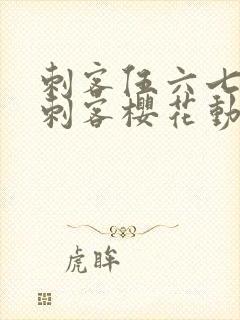 刺客伍六七
刺客樱花动
虎眸